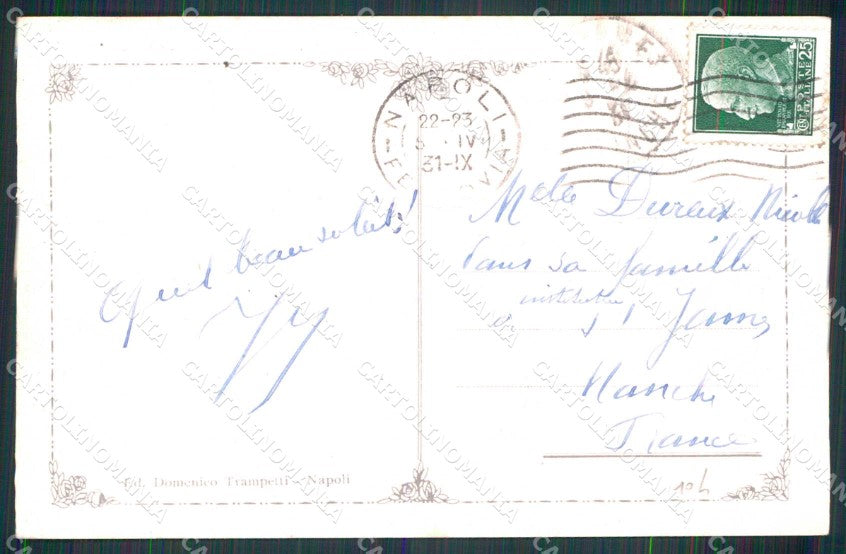 Quel beau soleil!
Ed. Domenico Trampetti - Napoli
NAPOLI
22-23
IV
31-IX
POSTE ITALIANE 25
Melle Dureux Nicole
Dans sa famille
institutrice
St James
Manche
France
CARTOLINOMANIA